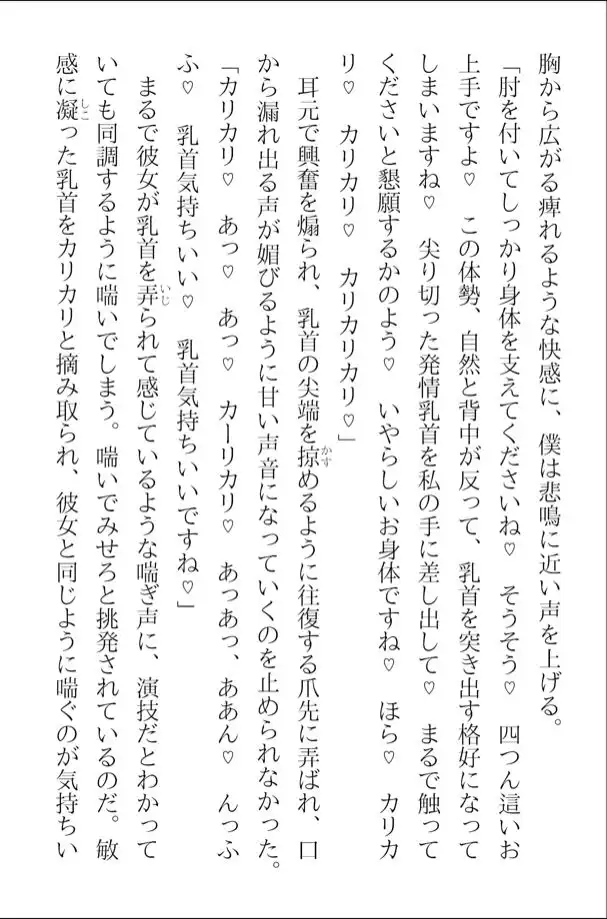 胸から広がる痺れるような快感に、僕は悲鳴に近い声を上げる。
「肘を付いてしっかり身体を支えてくださいね♡　そうそう♡　四つん這いお
上手ですよ♡　この体勢、自然と背中が反って、乳首を突き出す格好になって
しまいますね♡　尖り切った発情乳首を私の手に差し出して♡　まるで触って
くださいと懇願するかのよう♡　いやらしいお身体ですね♡　ほら♡　カリカ
リ♡　カリカリ♡　カリカリカリ♡」
耳元で興奮を煽られ、乳首の尖端を掠かすめるように往復する爪先に弄ばれ、口
から漏れ出る声が媚びるように甘い声音になっていくのを止められなかった。
「カリカリ♡　あっ♡　あっ♡　カーリカリ♡　あっあっ、ああん♡　んっふ
ふ♡　乳首気持ちいい♡　乳首気持ちいいですね♡」
まるで彼女が乳首を弄いじられて感じているような喘ぎ声に、演技だとわかって
いても同調するように喘いでしまう。喘いでみせろと挑発されているのだ。敏
感に凝しこった乳首をカリカリと摘み取られ、彼女と同じように喘ぐのが気持ちい